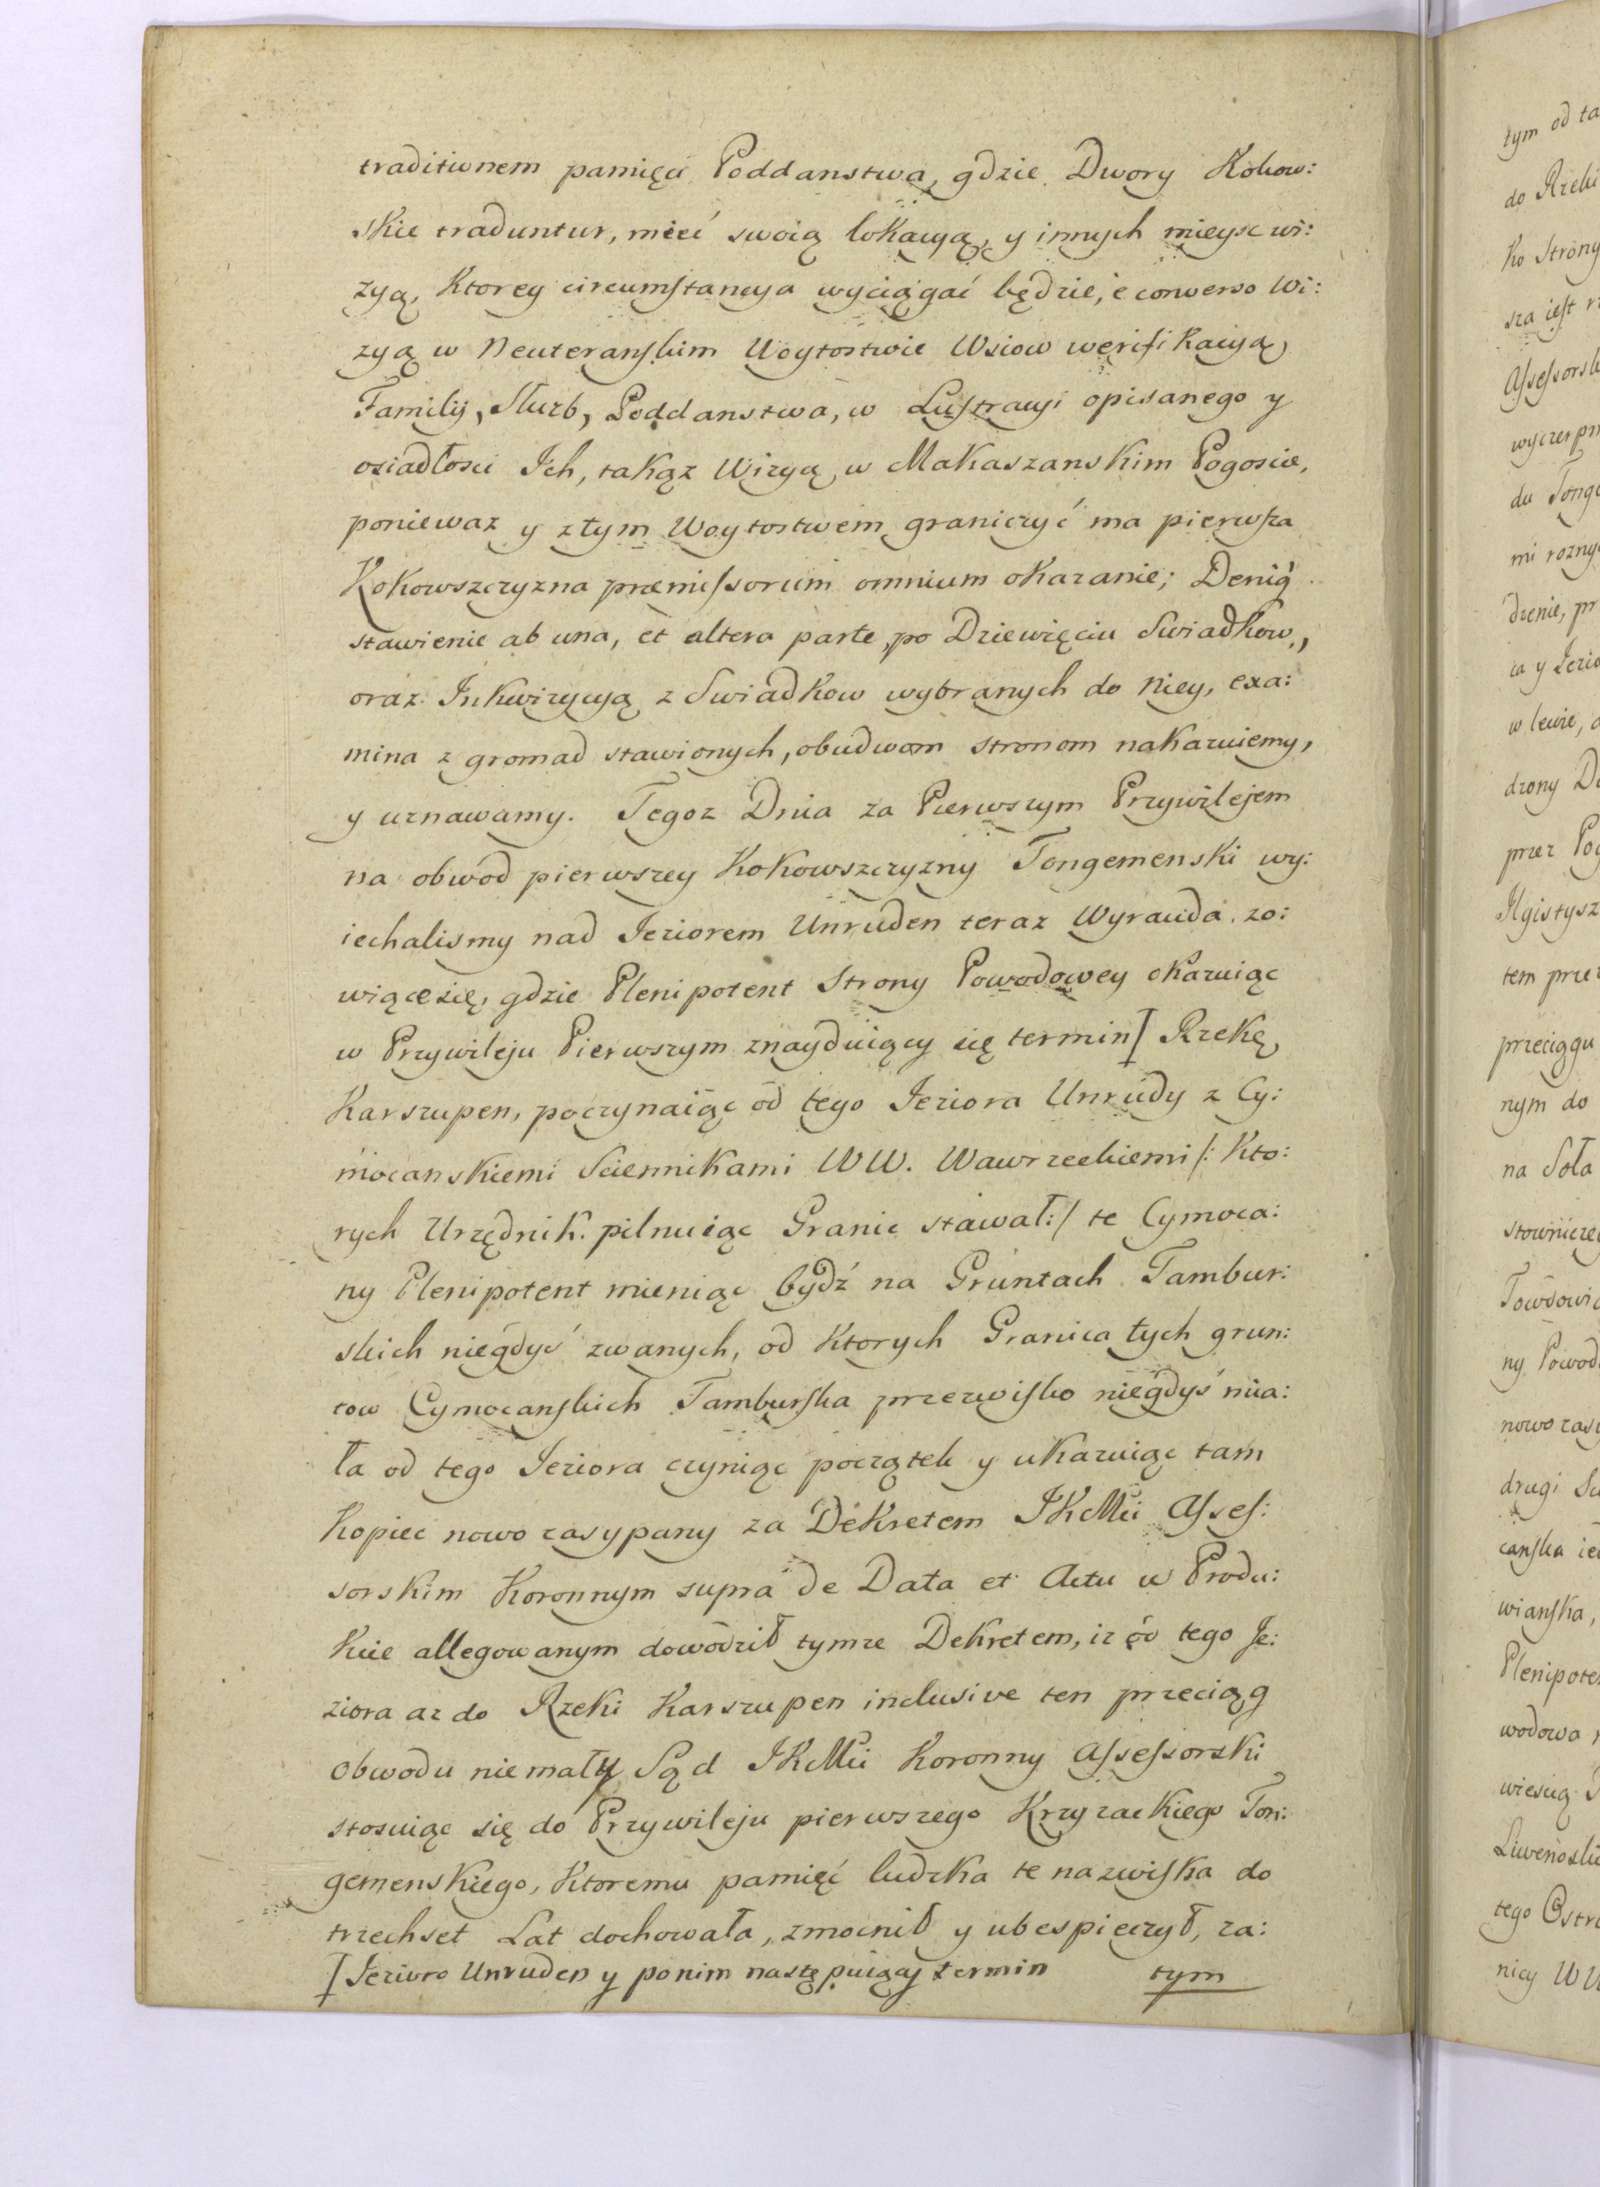 traditionem pamięci Poddanstwa, gdzie Dwory Kokow:
skie traduntur, mieć swoią lokacyą, y innych mieysc wi:
zyą, Ktorey circumstancya wyciągać będzie, è converso Wi:
zyą w Neuteranskim Woytostwie Wsiow werifikacyą,
Familij, Służb, Poddanstwa, w Lustracyi opisanego y
osiadłosci Ich, takąz Wizyą w Makaszanskim Pogoscie,
poniewaz y z tym Woytostwem graniczyć ma pierwsza
Kokowszczyzna præmissorum omnium okazanie; Deniq̃
stawienie ab una, et altera parte, po Dziewięciu Swiadkow,
oraz Inkwizycyą z Swiadkow wybranych do niey, exa:
mina z gromad stawionych, obudwom stronom nakazuiemy,
y uznawamy. Tegoz Dnia za Pierwszym Przywilejem
na obwod pierwszey Kokowszczyzny Tongemenski wy:
iechalismy nad Jeziorem Unruden teraz Wyrauda zo:
wiące się, gdzie Plenipotent Strony Powodowey okazuiąc
w Przywileju Pierwszym znayduiący się termin [ Rzekę
Karszupen, poczynaiąc od tego Jeziora Unrudy z Cy:
mocanskiemi Sciennikami WW. Wawrzeckiemi /: Kto:
rych Urzędnik pilnuiąc Granic stawał :/ te Cymoca:
ny Plenipotent mieniąc bydź na Gruntach Tambur:
skich niegdyś zwanych, od Ktorych Granica tych grun:
tow Cymocanskich Tamburska przezwisko niegdyś mia:
ła od tego Jeziora czyniąc początek y ukazuiąc tam
Kopiec nowo zasypany za Dekretem JKMci Asses:
sorskim Koronnym supra de Data et Actu w Produ:
kcie allegowanym dowodził tymze Dekretem, iz od tego Je:
ziora az do Rzeki Karszupen inclusive ten przeciąg
obwodu niemały Sąd JKMci Koronny Assessorski
stosuiąc się do Przywileju pierwszego Krzyzackiego Ton:
gemenskiego, Ktoremu pamięć ludzka te nazwiska do
trzechset Lat dochowała, zmocnił y ubespieczył, za:
[ Jezioro Unruden y ponim następuiący termin tym
tym od ta
do Rzeki
ko Strony
sza iest
Assessorsk
wyczerpn
du Tonge
mi rozny
dzenie, pr
ca y Jezio
w lewie,
dzony
przez
Ilgistysz
tem prze
przeciągu
nym do
na Soła
stowniczey
Towdowi
ny Powod
nowo zasy
drugi
canska ie
wianska,
Plenipote
wodowa
wiesuą
Liwenosk
tego Ostr
nicy WW